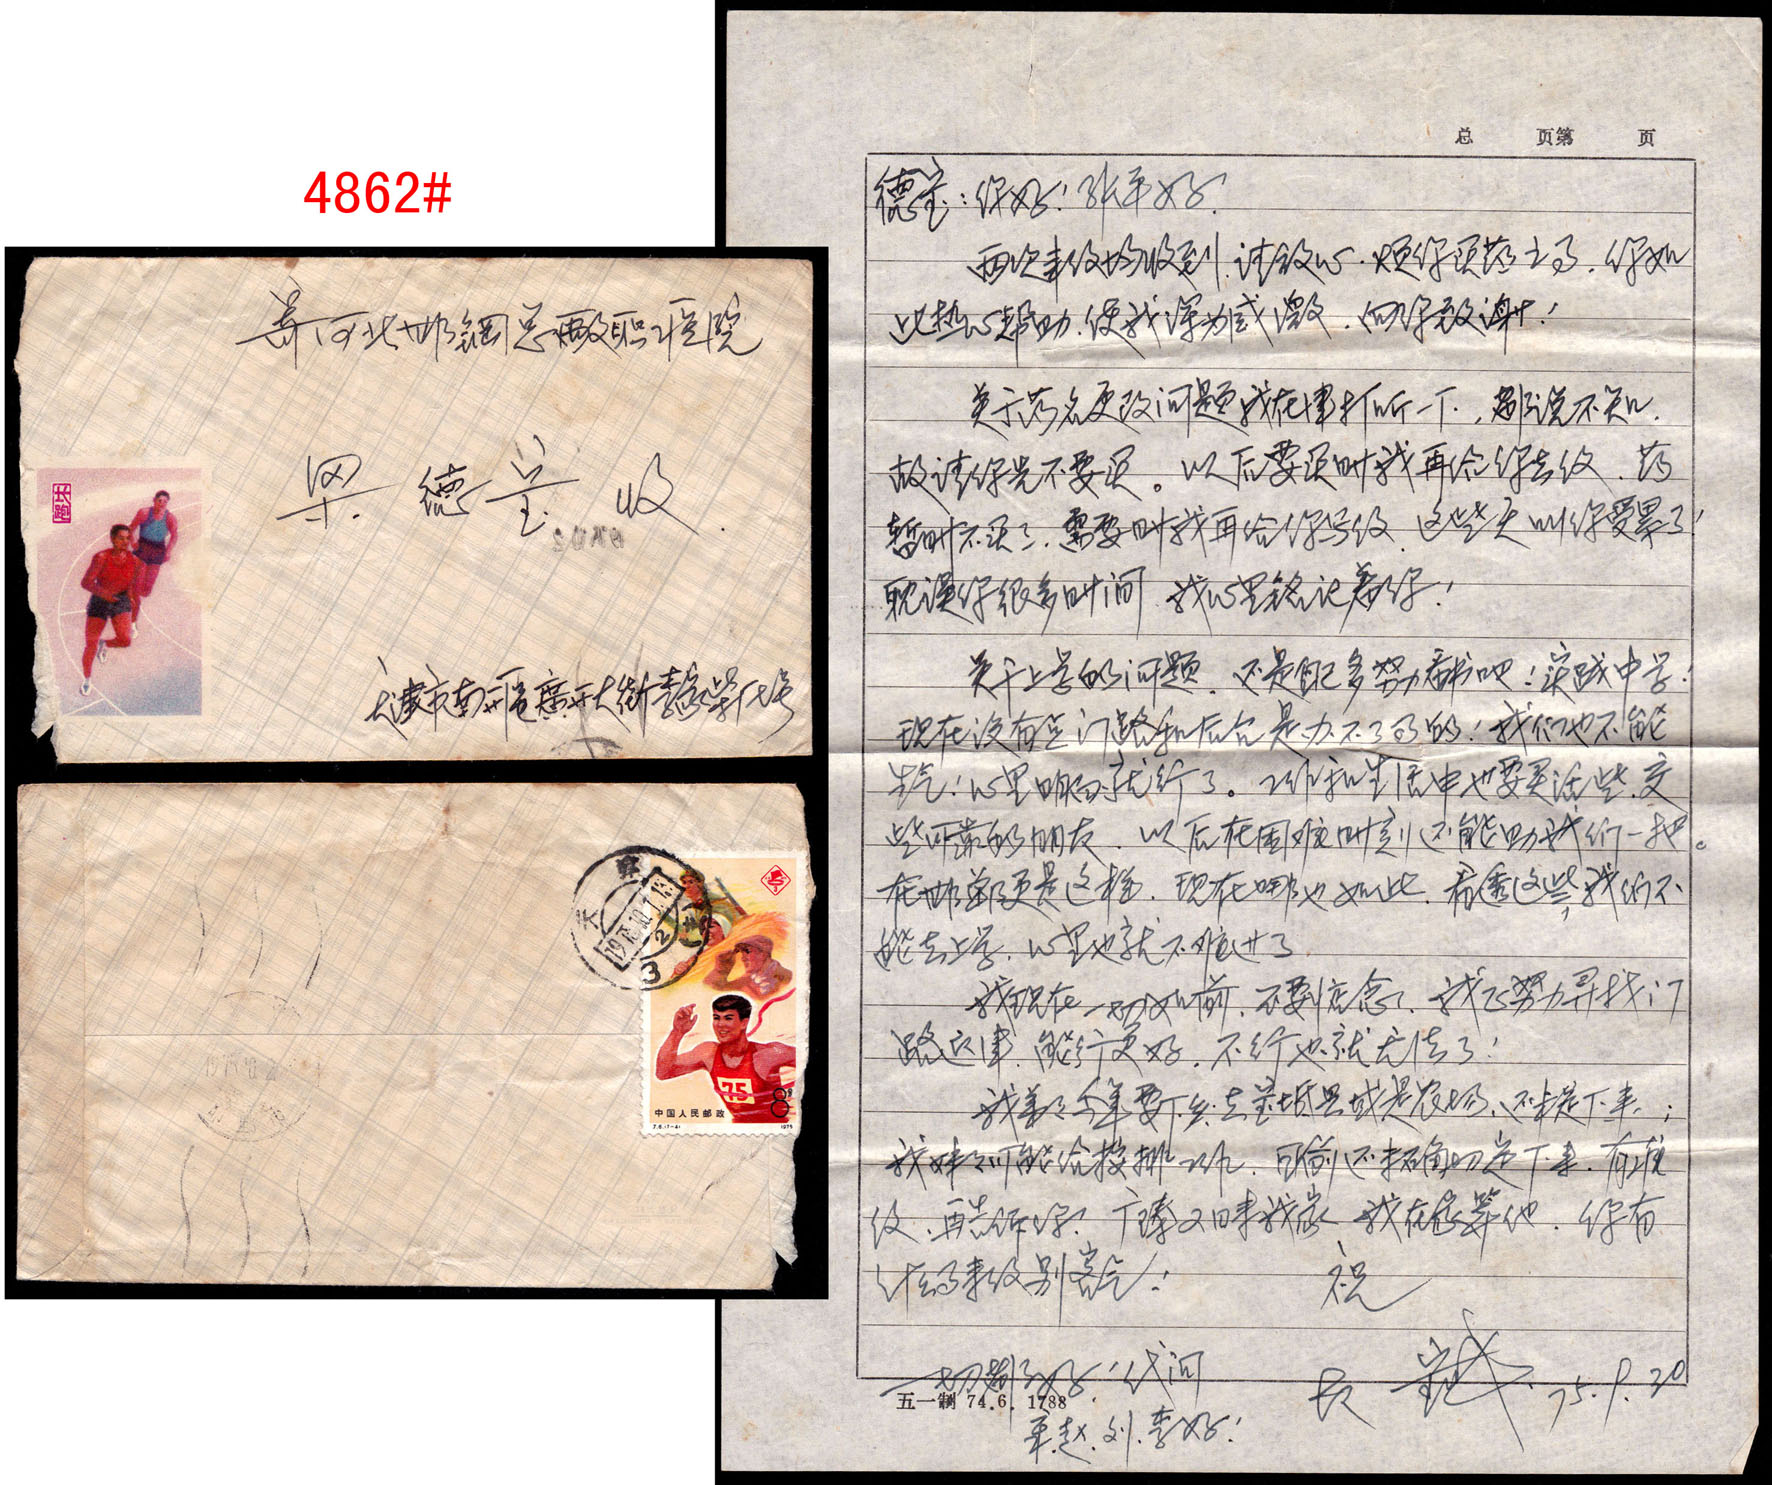 4862#
寄河北邯钢总厂职工医院
梁德宝 收
长跑
天津市南开区广开大街
1975.10.2
天津
1975.10.1.13
3
75
中国人民邮政
8分
T.6.(7-4)
1975
总 页第 页
德宝：你好！张平好！
两次来信均收到，请放心。烦你买药之事，你如
此热心帮助，使我深为感激，向你致谢！
关于药名更改问题我在津打听一下，都说不知，
故请你先不要买。以后要买时我再给你去信，药
暂时不买了，需要时我再给你写信，这些天叫你受累了！
耽误你很多时间，我心里铭记着你！
关于上学的问题，还是自己多努力看书吧！实践中学！
现在没有后门路和后台是办不了事的！我们也不能
生气！心里明白就行了。工作和生活中也要灵活些，交
些可靠的朋友，以后在困难时刻还能助我们一把。
在邯郸更是这样，现在哪也如此，看透这些，我们不
能去上学，心里也就不难过了
我现在一切如前，不要惦念，我正努力寻找门
路回津，能行更好，不行也就无法了！
我弟弟今年要下乡，去宝坻县或是农场，还未定下来；
我妹可能给按排工作，目前还未确切定下来，有准
信，再告诉你，广臻又回来我家，我在家等他，你有
什么事来信别客气！ 祝
一切都好！代问
五一制 74.6. 1788
平.赵.刘.李好！
长诚 75.9.30